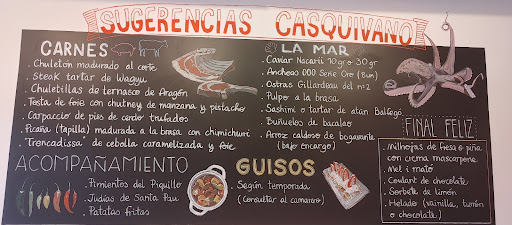 SUGERENCIAS CASQUIVANO
CARNES
. Chuletón madurado al corte
. Steak tartar de Wagyu
. Chuletillas de ternasco de Aragón
. Testa de foie con chutney de manzana y pistacho
. Carpaccio de pies de cerdo trufados
. Picaña (tapilla) madurada a la brasa con chimichurri
. Trencadissa de cebolla caramelizada y foie
ACOMPAÑAMIENTO
. Pimientos del Piquillo
. Judías de Santa Pau
. Patatas fritas
LA MAR
. Caviar Nacarii 10gr o 30gr
. Anchoas 000 Serie Oro (8un)
. Ostras Gillardeau del nº2
. Pulpo a la brasa
. Sashimi o tartar de atun Balfegó
. Buñuelos de bacalao
. Arroz caldoso de bogavante
(bajo encargo)
GUISOS
. Según temporada
(consultar al camarero)
FINAL FELIZ
. Milhojas de fresa o piña
con crema mascarpone
. Mel i mató
. Coulant de chocolate
. Sorbete de limón
. Helado (vainilla, turrón
o chocolate)